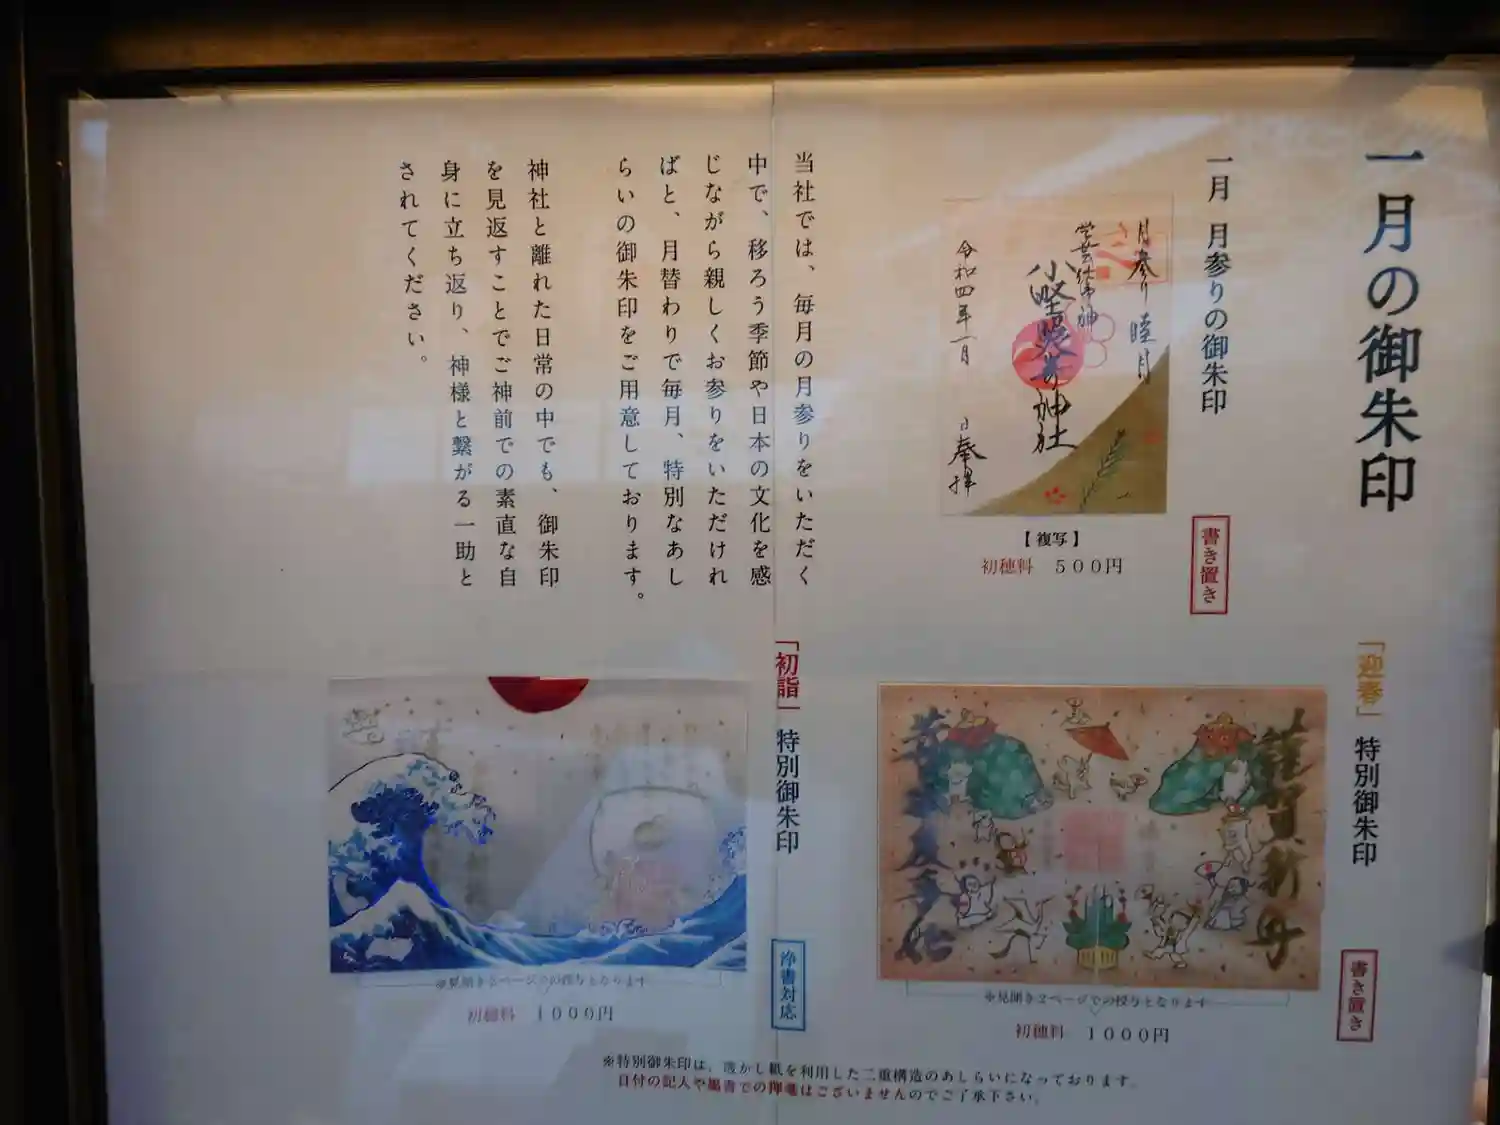 一月の御朱印
一月 月参りの御朱印
書き置き
月参り 睦月
学芸仕事神
小野照崎神社
令和四年一月 日 奉拝
【複写】
初穂料 500円
当社では、毎月の月参りをいただく
中で、移ろう季節や日本の文化を感
じながら親しくお参りをいただけれ
ばと、月替わりで毎月、特別なあし
らいの御朱印をご用意しております。
神社と離れた日常の中でも、御朱印
を見返すことでご神前での素直な自
身に立ち返り、神様と繋がる一助と
されてください。
「迎春」特別御朱印
書き置き
謹賀新年
※見開き2ページでの授与となります
初穂料 1000円
「初詣」特別御朱印
浄書対応
※見開き2ページでの授与となります
初穂料 1000円
※特別御朱印は、透かし紙を利用した二重構造のあしらいになっております。
日付の記入や墨書での押印はございませんのでご了承下さい。